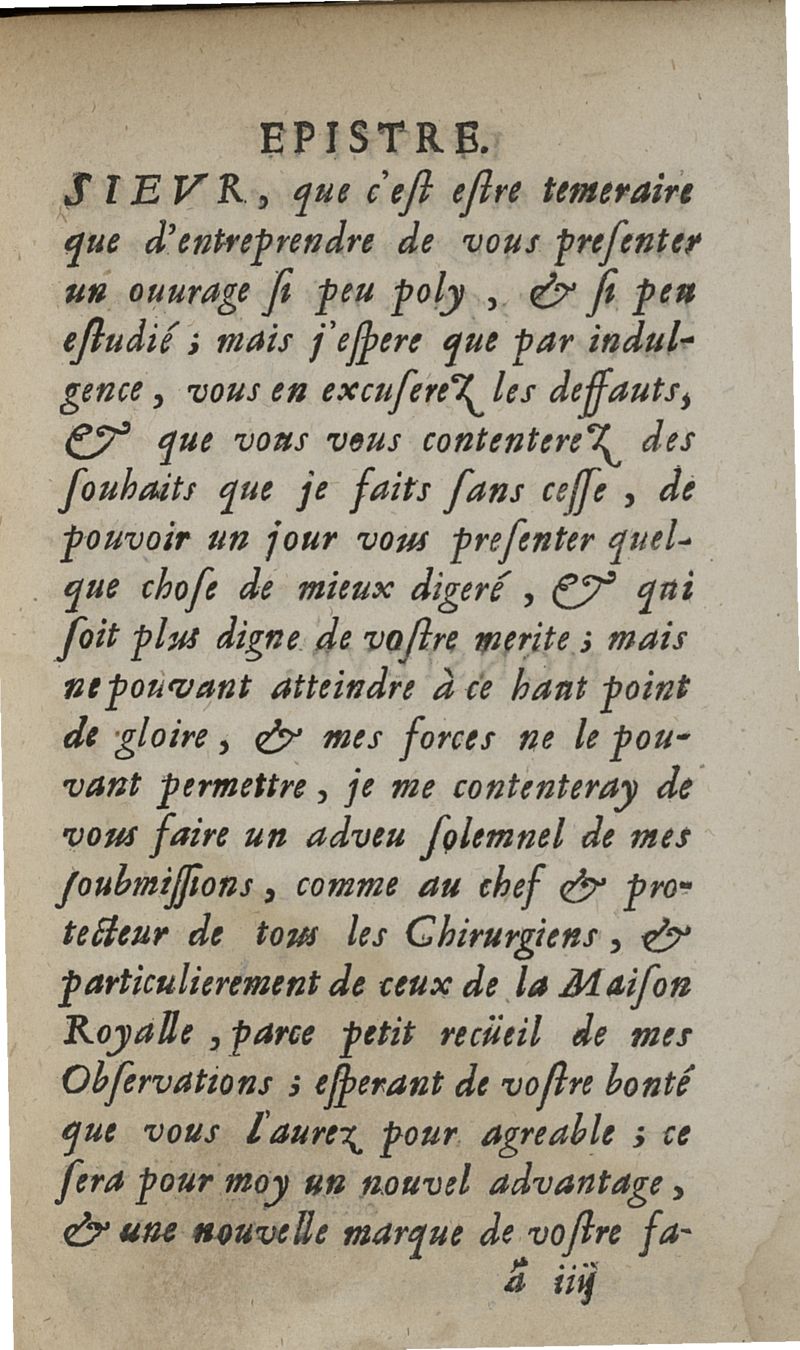 EPISTRE.
SIEVR, que c'est estre temeraire
que d'entreprendre de vous presenter
un ouurage si peu poly, & si peu
estudié; mais j'espere que par indul-
gence, vous en excuserez les deffauts,
& que vous vous contenterez des
souhaits que je faits sans cesse, de
pouvoir un jour vous presenter quel-
que chose de mieux digeré, & qui
soit plus digne de vostre merite; mais
ne pouvant atteindre à ce haut point
de gloire, & mes forces ne le pou-
vant permettre, je me contenteray de
vous faire un adveu solemnel de mes
soubmissions, comme au chef & pro-
tecteur de tous les Chirurgiens, &
particulierement de ceux de la Maison
Royalle, parce petit recüeil de mes
Observations; esperant de vostre bonté
que vous l'aurez pour agreable; ce
sera pour moy un nouvel advantage,
& une nouvelle marque de vostre fa-
ã iiij